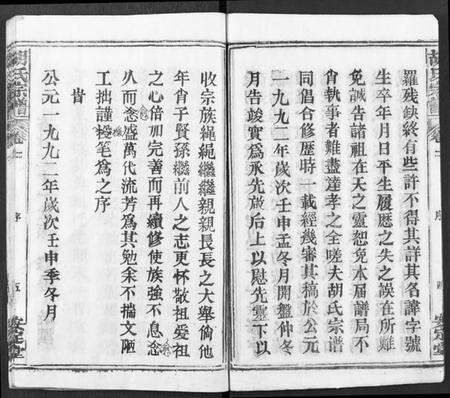 羅残缺終有些許不得其詳其名諱字號
生卒年月日平生履歷之失之誤在所難
免誠告諸祖在天之靈恕免本屆譜局不
肖執事者難盡達孝之全嗟夫胡氏宗譜
同倡合修歷時一載經幾審其稿於公元
一九九二年歲次壬申孟冬月開盤仲冬
月告竣實為承先啟后上以慰先靈下以
收宗族繩繩繼繼親親長長之大舉倘他
年肖子賢孫繼前人之志更怀敬祖爱祖
之心倍加完善而再續修使族強不息念
久而愈盛萬代流芳爲其勉余不揣文陋
工拙謹輕至爲之序
旹
公元一九九二年歲次壬申季冬月
胡氏宗譜
卷
序
五
安定堂